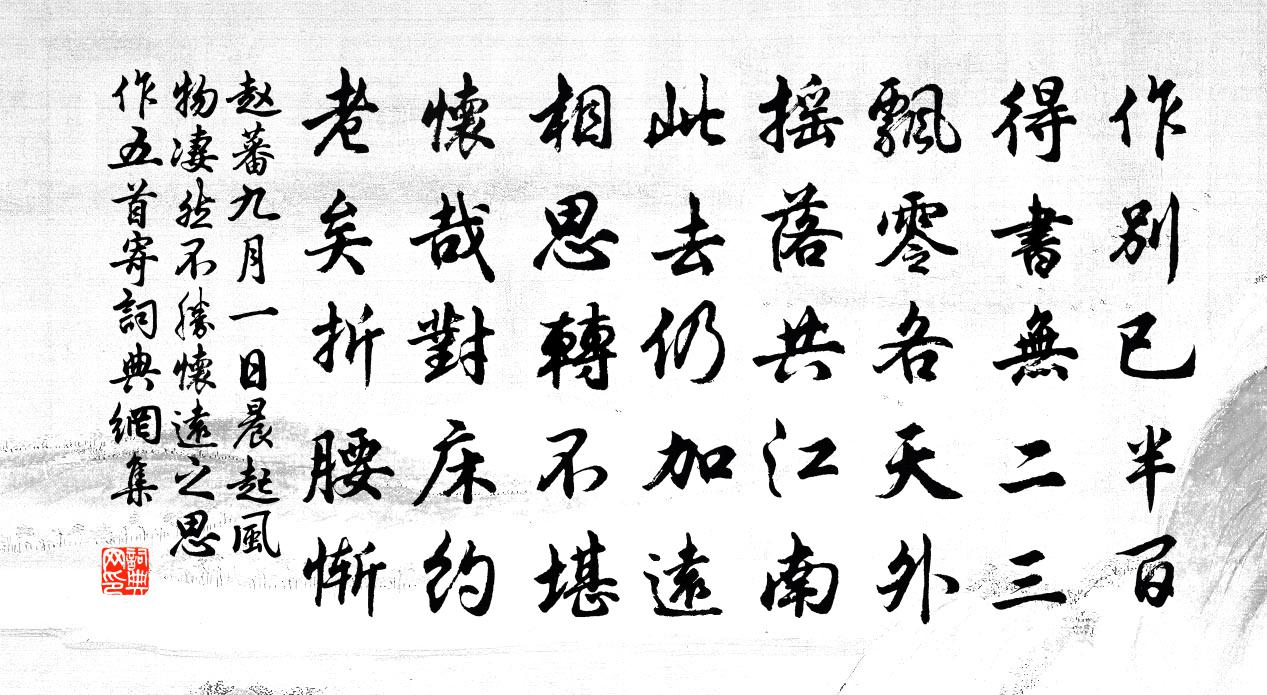 作别已半百
得書無二三
飄零各天外
摇落共江南
此去仍加遠
相思轉不堪
懷哉對床約
老矣折腰慚
赵蕃九月一日晨起風
物凄然不勝懷遠之思
作五首寄詞典網集
詞典网印